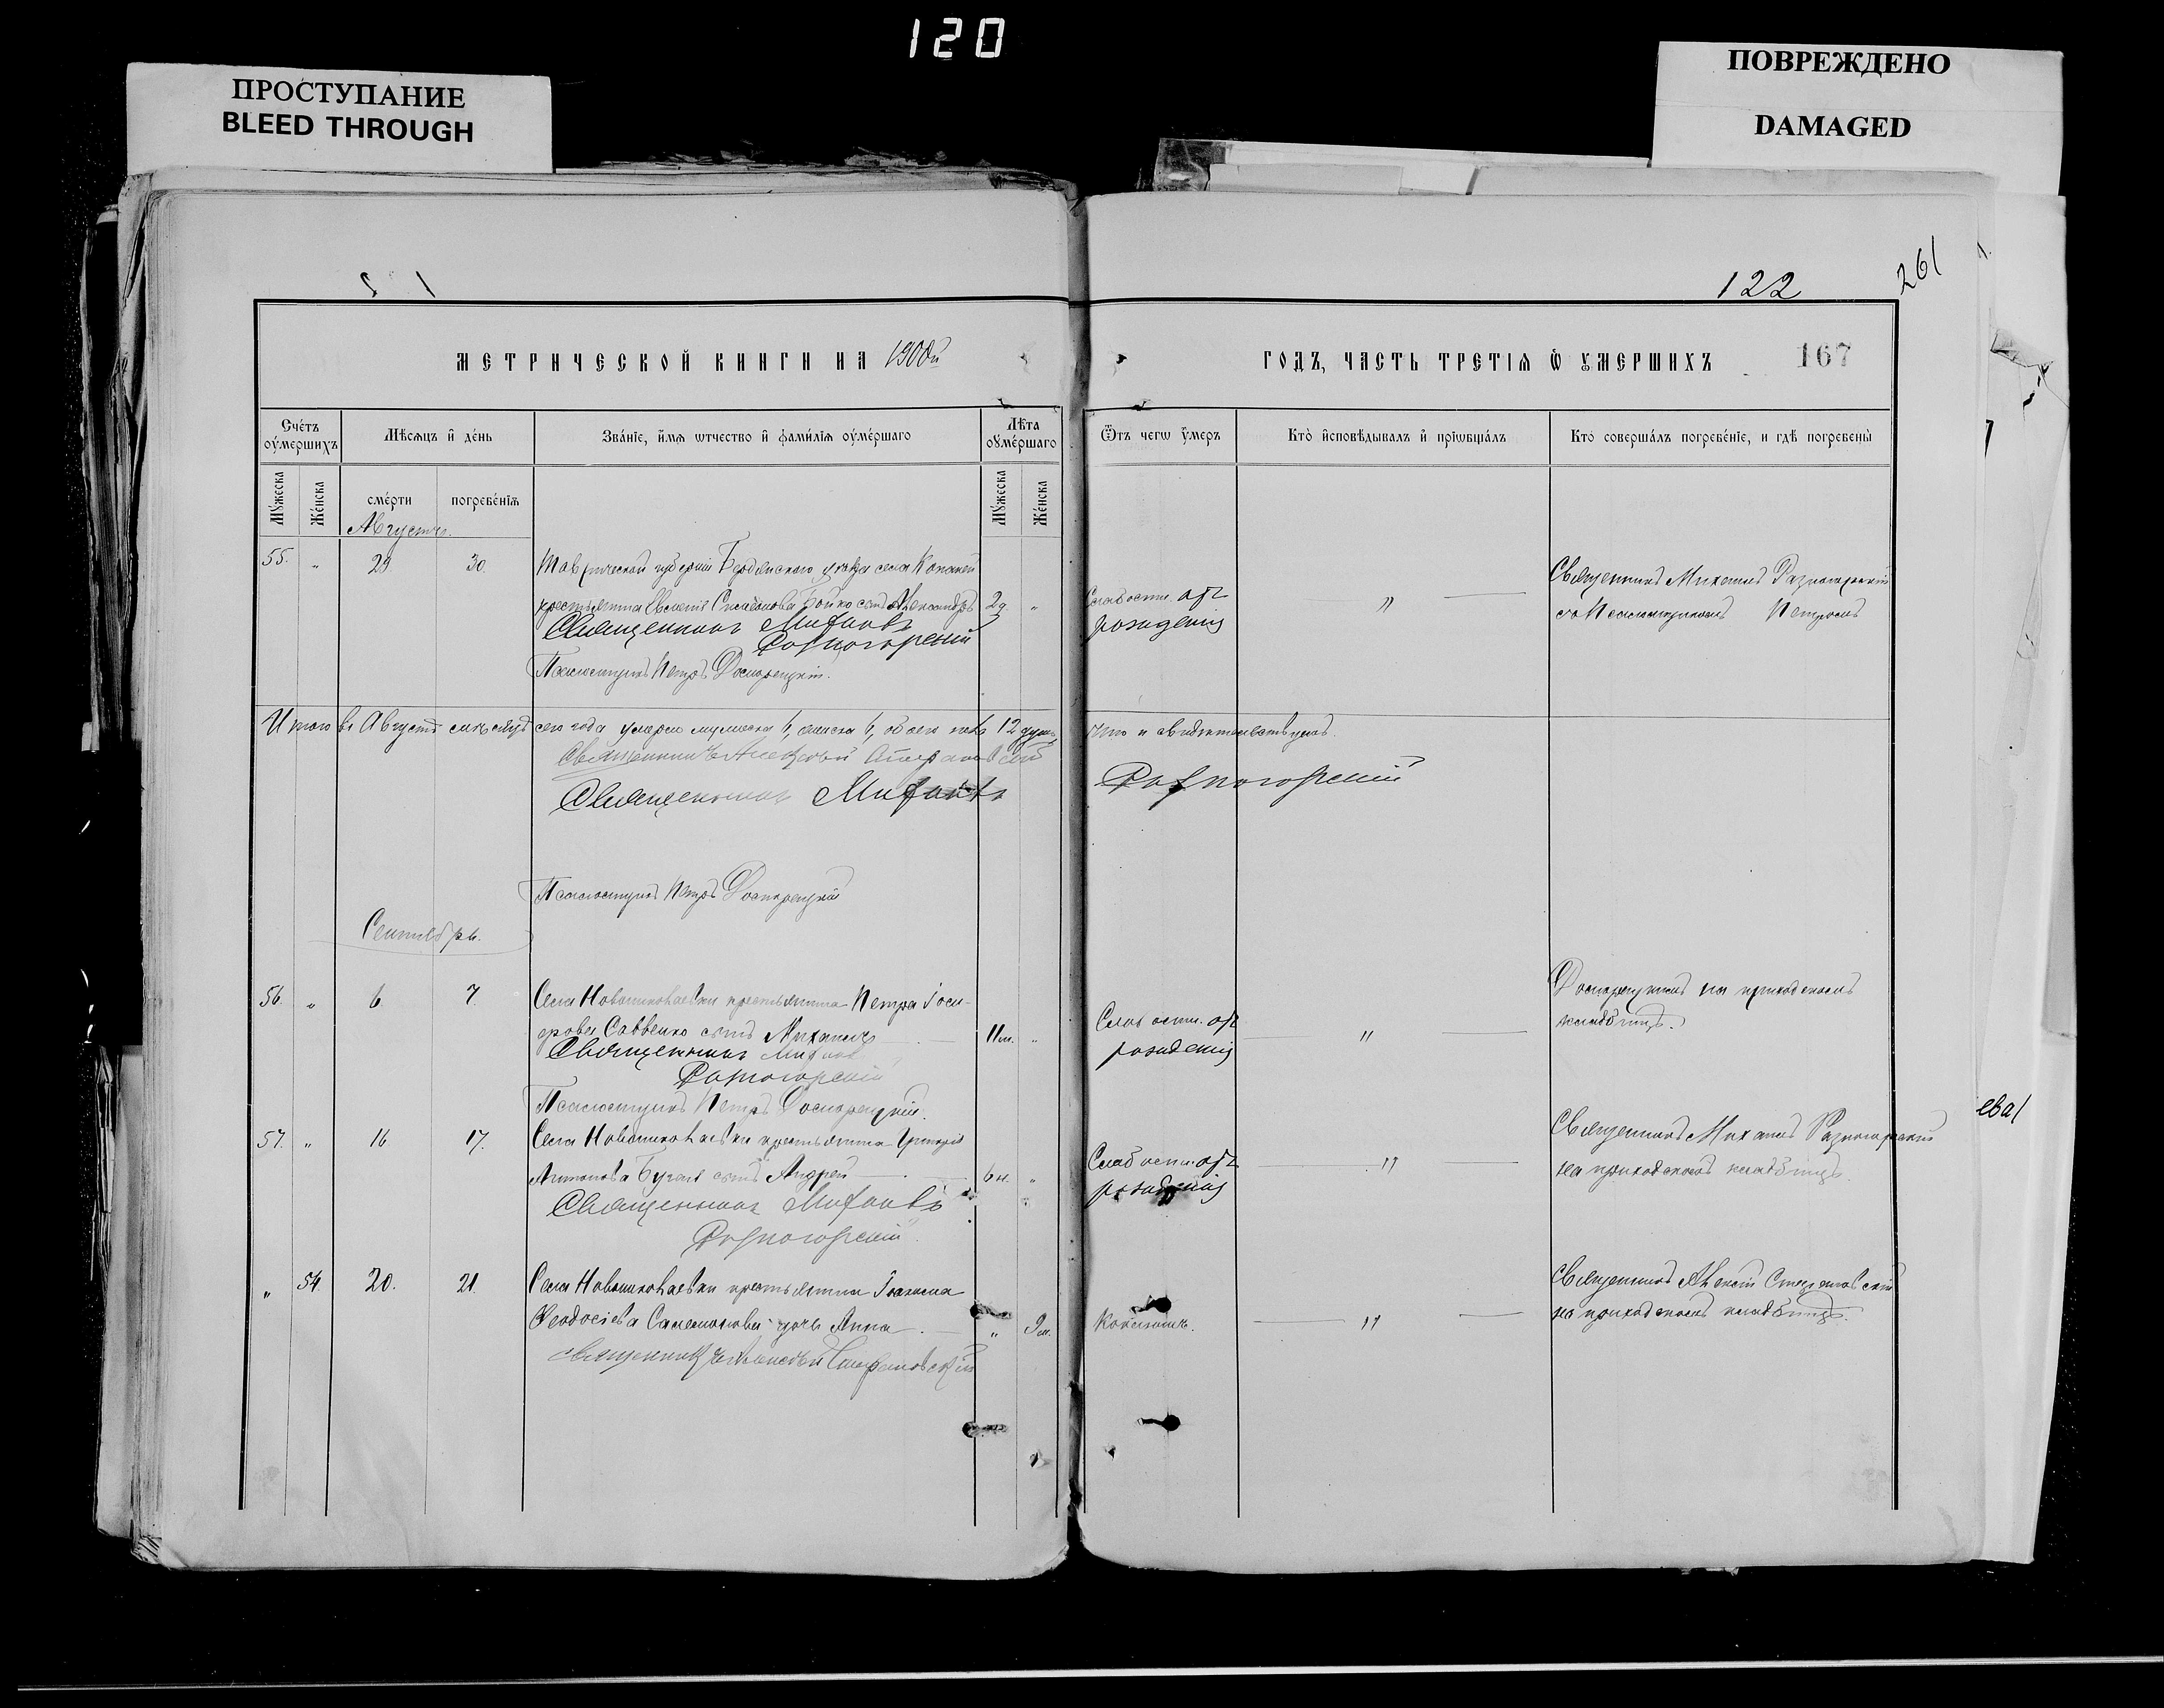 120
ПРОСТУПАНИЕ
BLEED THROUGH
ПОВРЕЖДЕНО
DAMAGED
122
261
МЕТРИЧЕСКОЙ КНИГИ НА 1900й
ГОДЪ, ЧАСТЬ ТРЕТІѦ Ѡ УМЕРШИХЪ
167
Счетъ оумершихъ
Мѣсѧцъ и день
Званіе, имѧ ѿчество и фамиліѧ оумершаго
Лѣта оумершаго
Ѿ чегѡ умеръ
Кто исповѣдывалъ и пріѡбщалъ
Кто совершалъ погребеніе, и гдѣ погребены
Мужеска
Женска
смерти
погребеніѧ
Мужеска
Женска
Августъ.
55. " 29. 30. Таврической губерніи Бердянскаго уѣзда села
крестьянина Симеонова Бойко сынъ Александръ 2д. "
Слабости отъ
рожденія
"
Священникъ Михаилъ Разногорскій
съ Псаломщикомъ Петромъ
Священникъ Михаилъ
Разногорскій
Псаломщикъ Петръ
Итого въ Августѣ мѣсяцѣ сего года умерло мужеска 6, женска 6, обоего пола 12 душъ,
что и свидѣтельствуемъ.
Священникъ Алексѣй
Священникъ Михаилъ
Разногорскій
Псаломщикъ Петръ
Сентябрь.
56. " 6 7. Села Новониколаевки крестьянина Петра
Савенко сынъ Михаилъ 11м. "
Слабости отъ
рожденія
"
на приходскомъ
кладбищѣ.
Священникъ Михаилъ
Разногорскій
Псаломщикъ Петръ
57. " 16 17. Села Новониколаевки крестьянина Григорія
Антонова сынъ Андрей 6н. "
Слабости отъ
рожденія
"
Священникъ Михаилъ Разногорскій
на приходскомъ кладбищѣ.
Священникъ Михаилъ
Разногорскій
" 54. 20. 21. Села Новониколаевки крестьянина
Ѳеодосіева дочь Анна " 9м.
"
Священникъ Алексѣй Стефановскій
на приходскомъ кладбищѣ.
Священникъ Алексѣй Стефановскій
ева